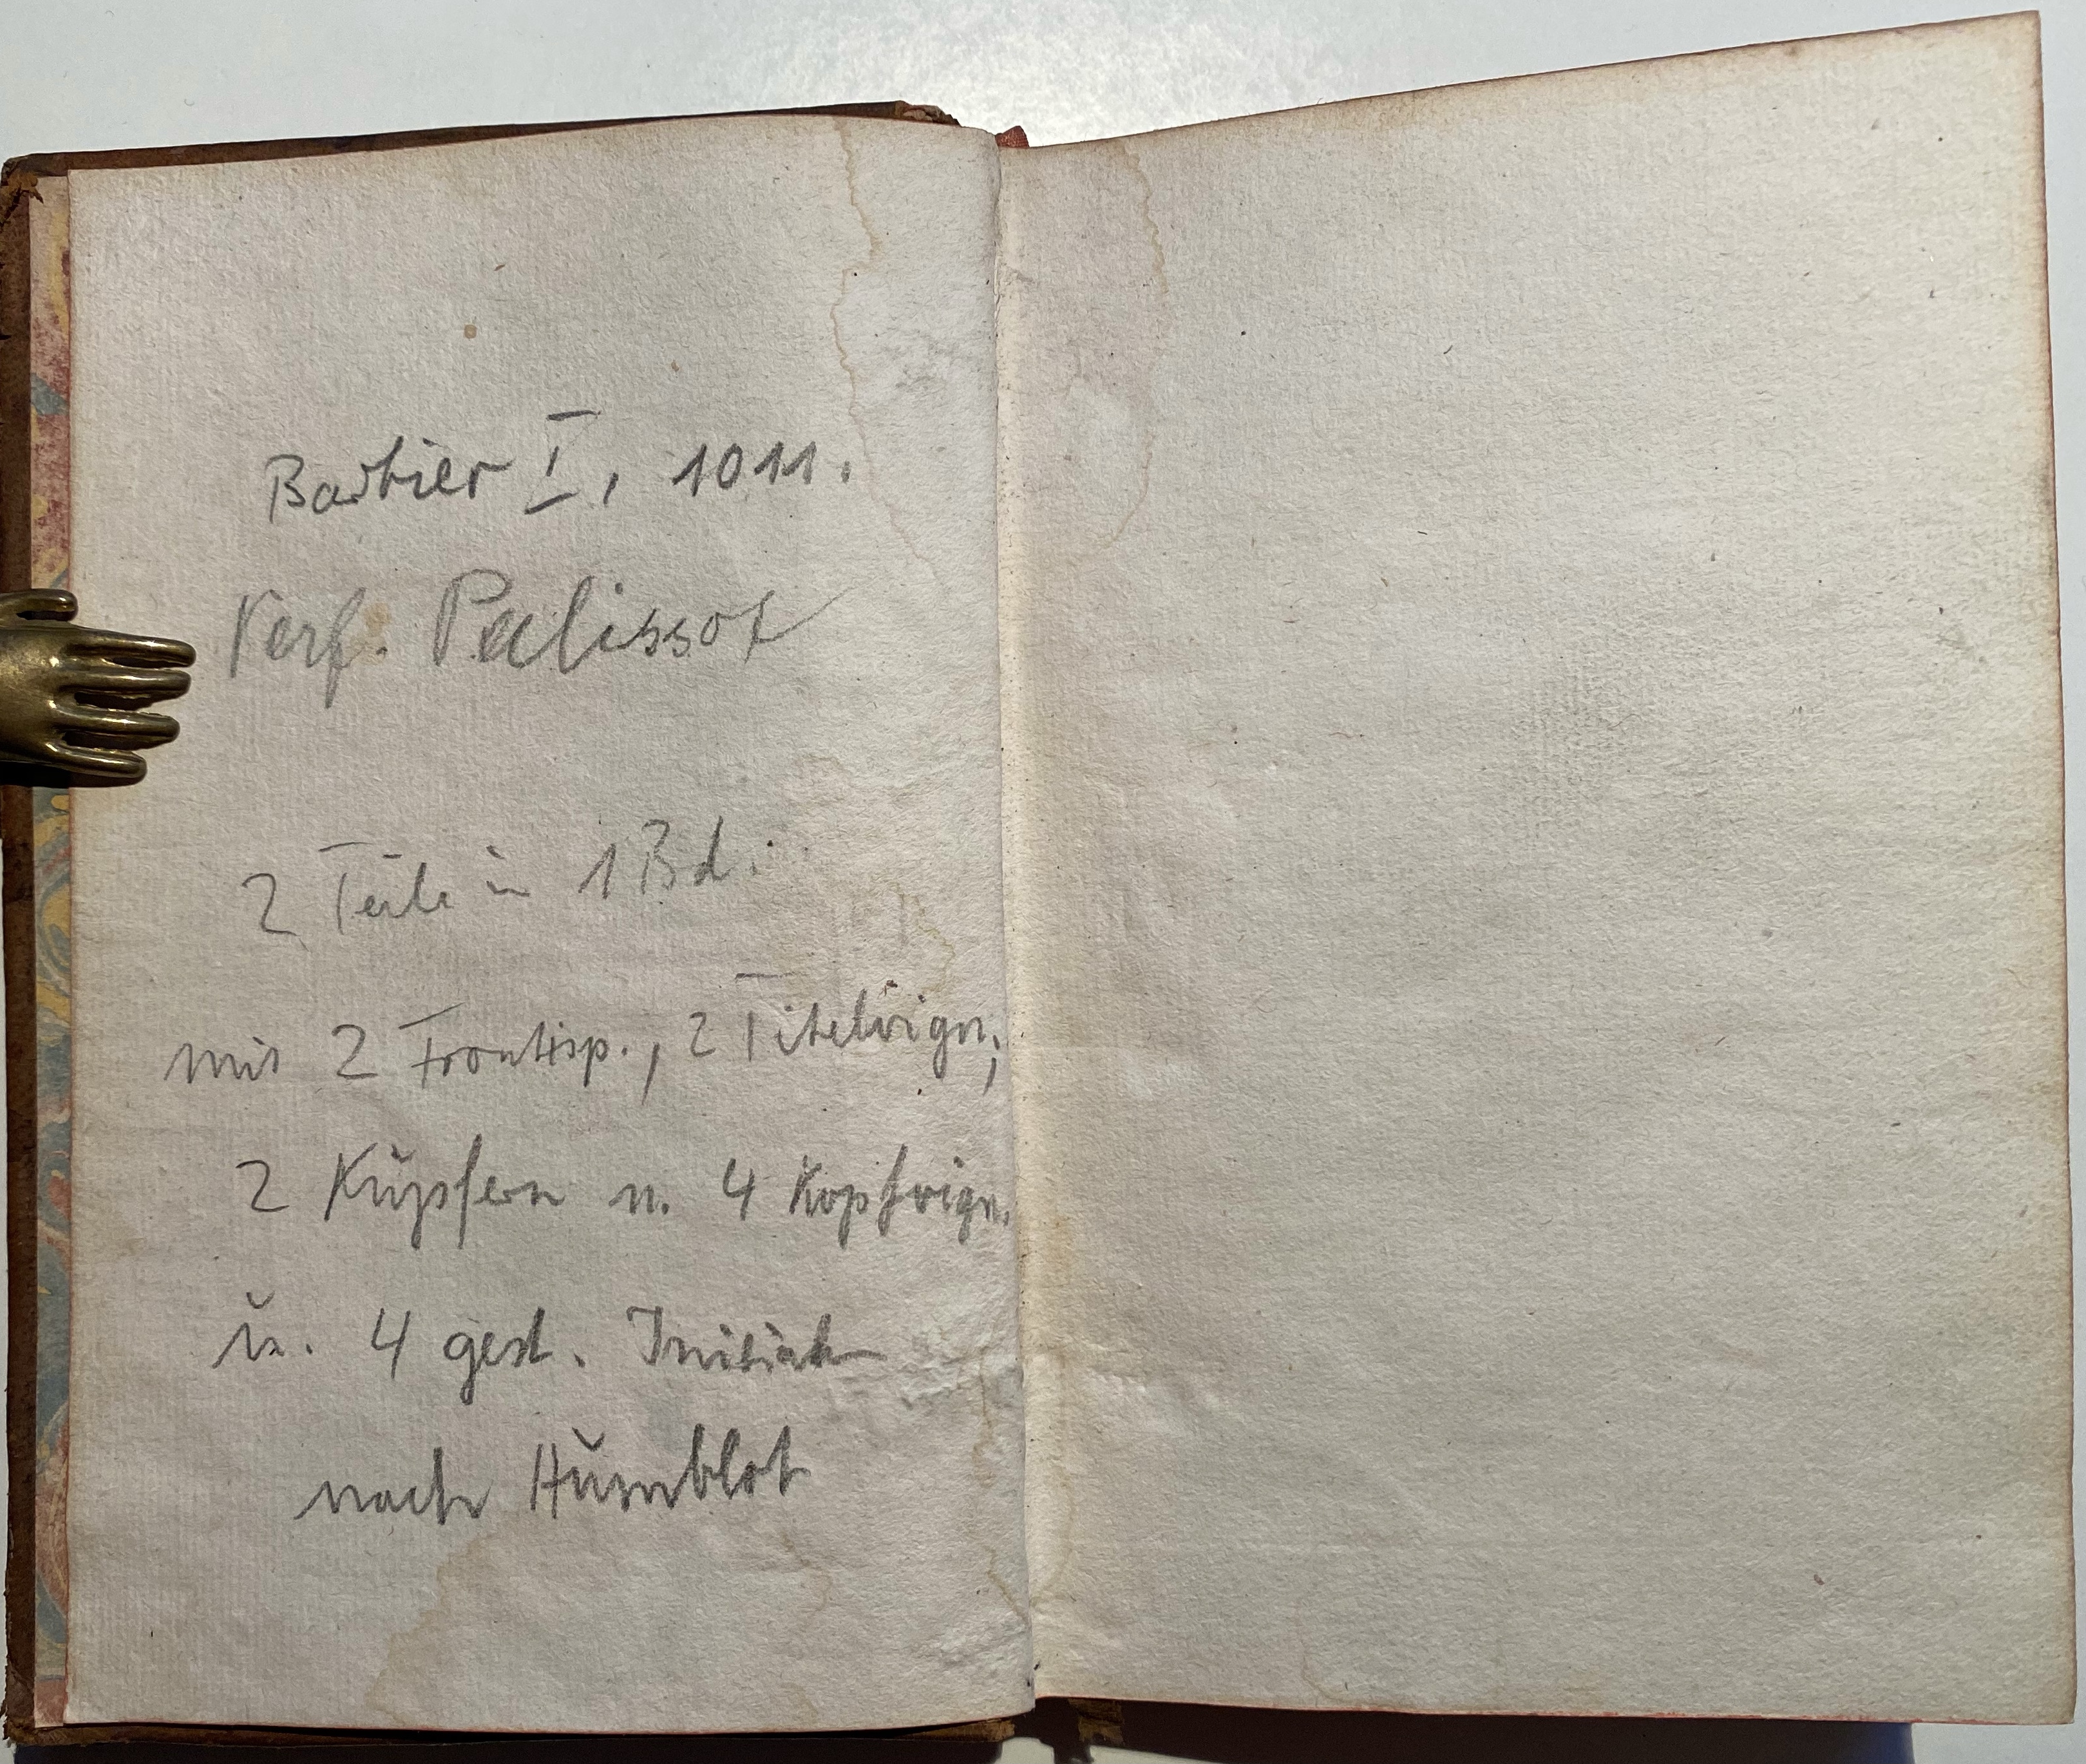 Barbier I, 1011.
Verf. Palissot
2 Teile in 1 Bd.
mit 2 Frontisp., 2 Titelvign.,
2 Kupfern u. 4 Kopfvign.
u. 4 gest. Initialen
nach Humblot